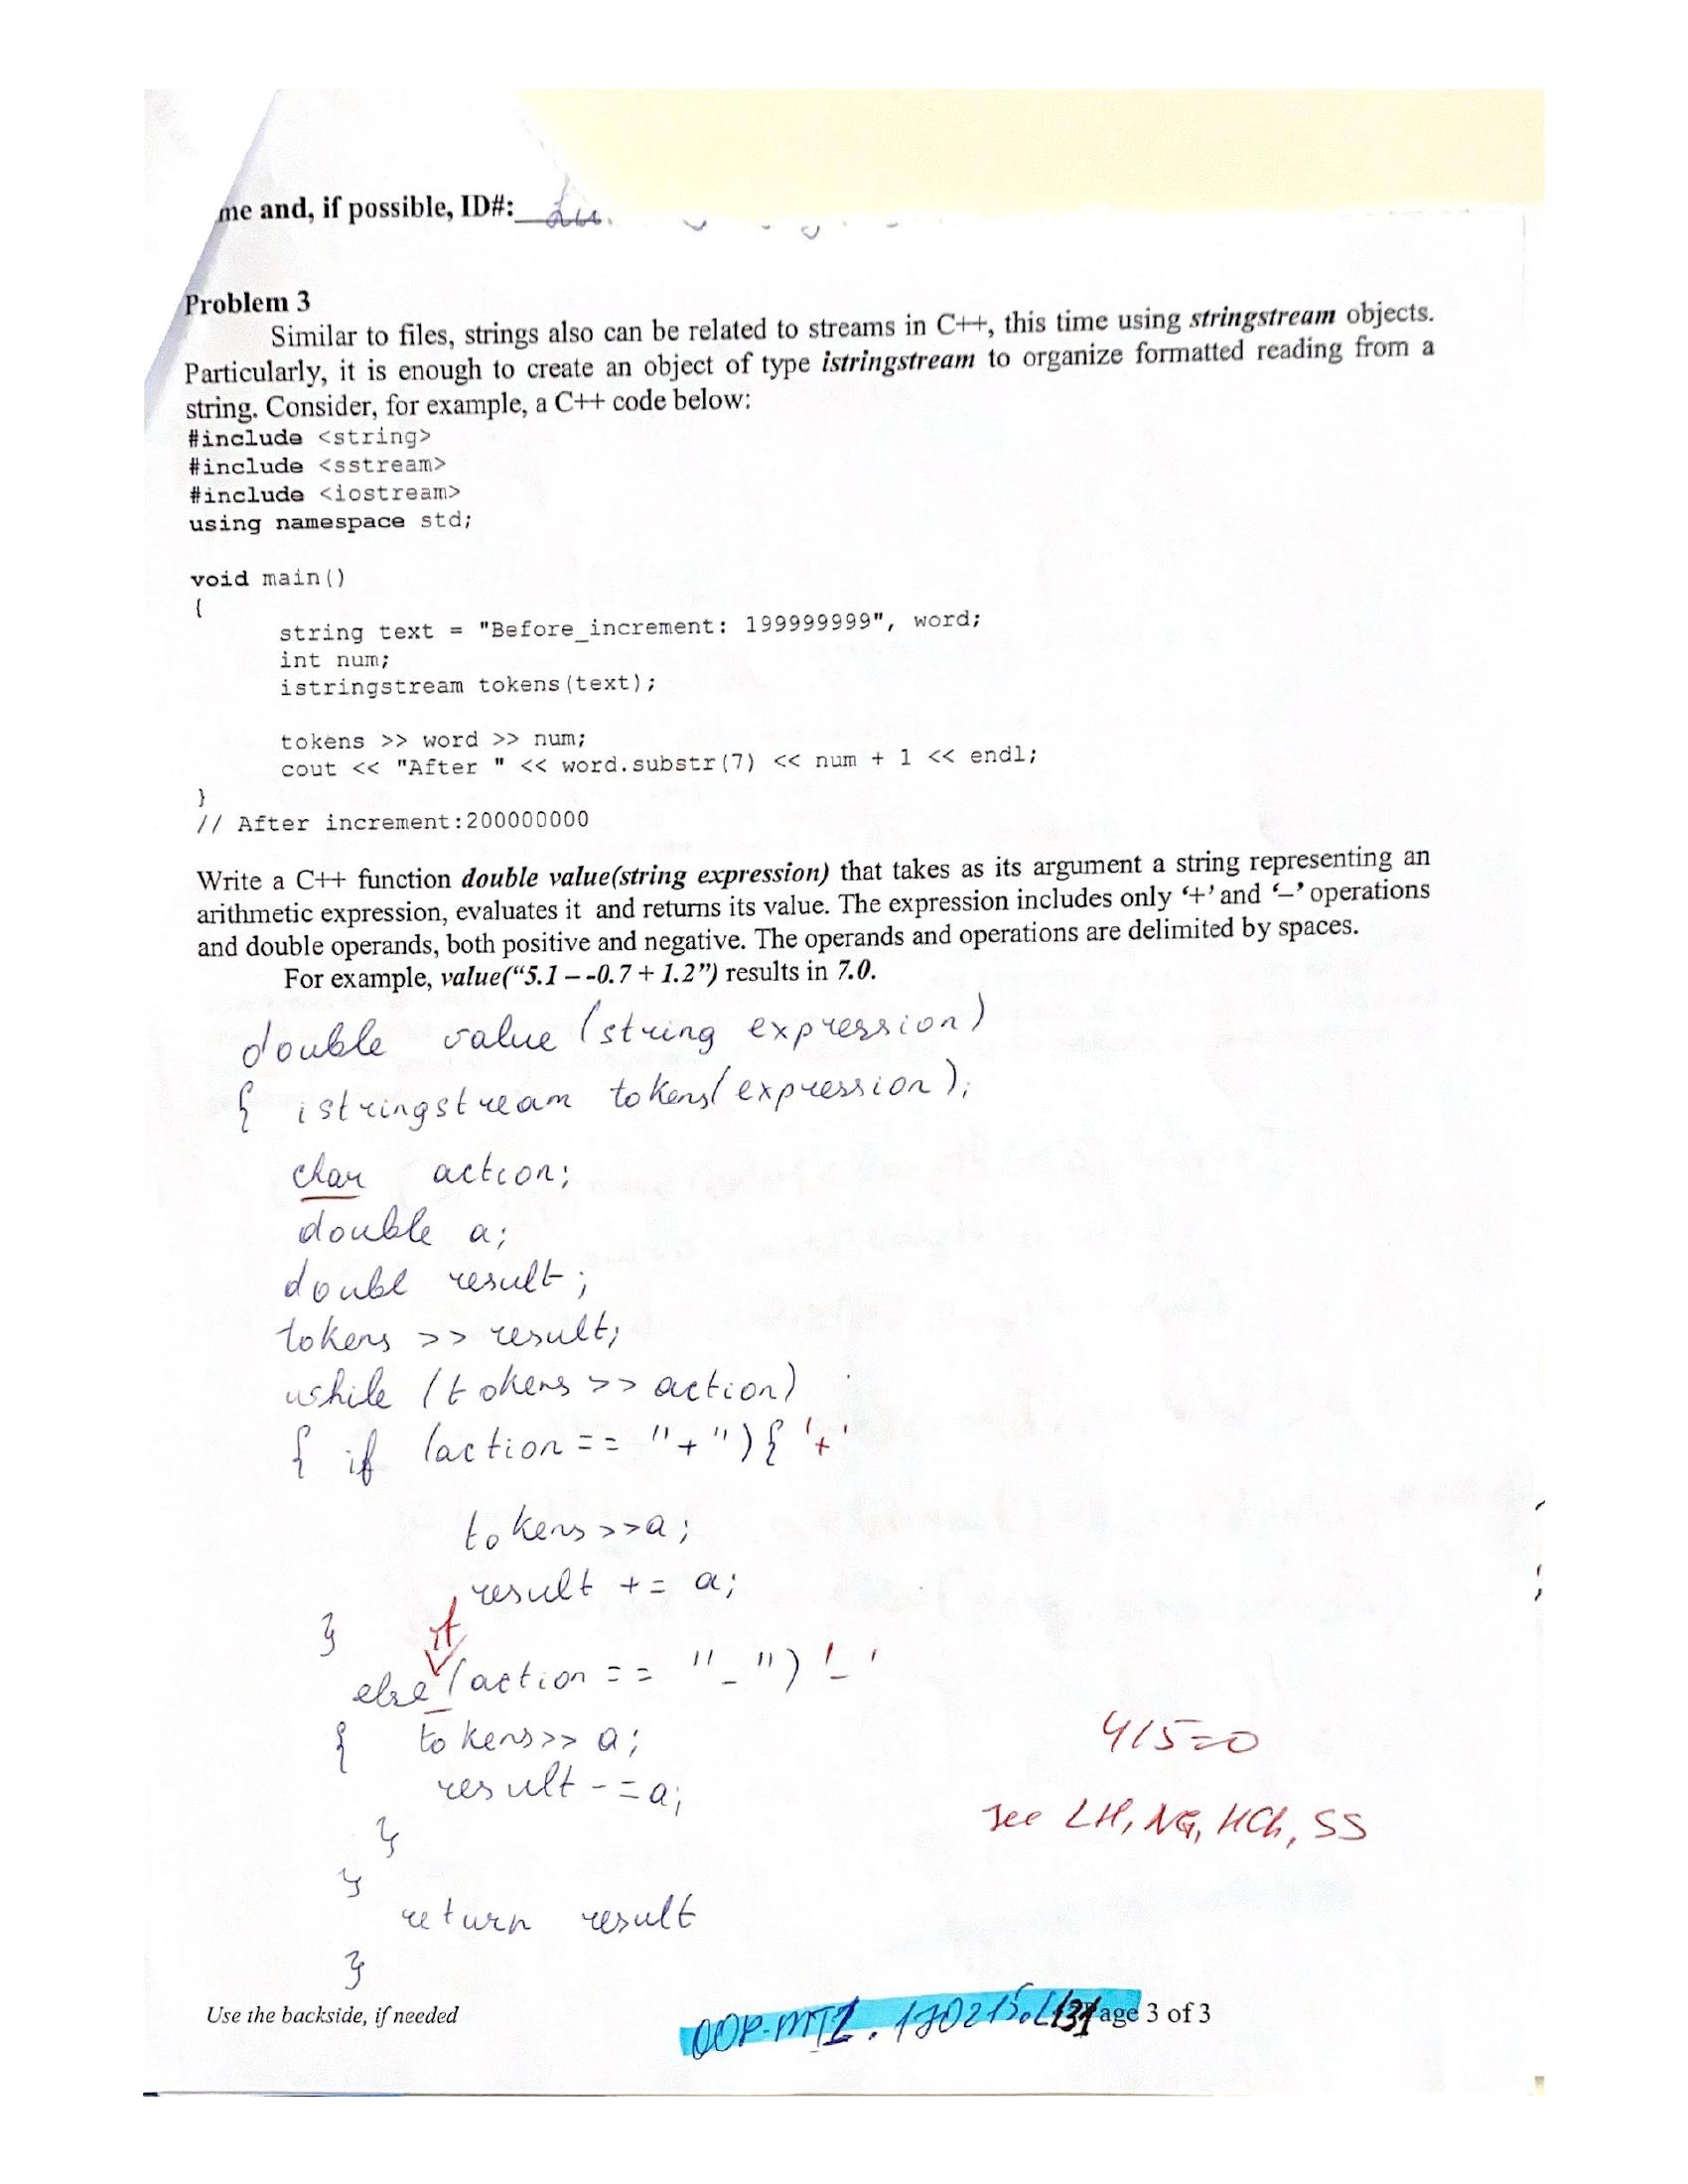 me and, if possible, ID#:
Problem 3
Similar to files, strings also can be related to streams in C++, this time using stringstream objects.
Particularly, it is enough to create an object of type istringstream to organize formatted reading from a
string. Consider, for example, a C++ code below:
#include <string>
#include <sstream>
#include <iostream>
using namespace std;
void main()
{
string text = "Before_increment: 199999999", word;
int num;
istringstream tokens(text);
tokens >> word >> num;
cout << "After " << word.substr(7) << num + 1 << endl;
}
// After increment:200000000
Write a C++ function double value(string expression) that takes as its argument a string representing an
arithmetic expression, evaluates it and returns its value. The expression includes only ‘+’ and ‘–’ operations
and double operands, both positive and negative. The operands and operations are delimited by spaces.
For example, value(“5.1 – -0.7 + 1.2”) results in 7.0.
double value (string expression)
{ istringstream tokens(expression);
char action;
double a;
doubl result;
tokens >> result;
while (tokens >> action)
{ if (action == "+") { '+'
tokens >> a;
result += a;
}
if
else (action == "-") '-'
{ tokens >> a;
result -= a;
}
}
return result
}
415=0
see LH, NG, HCh, SS
Use the backside, if needed
OOP-MT1. 170215. age 3 of 3